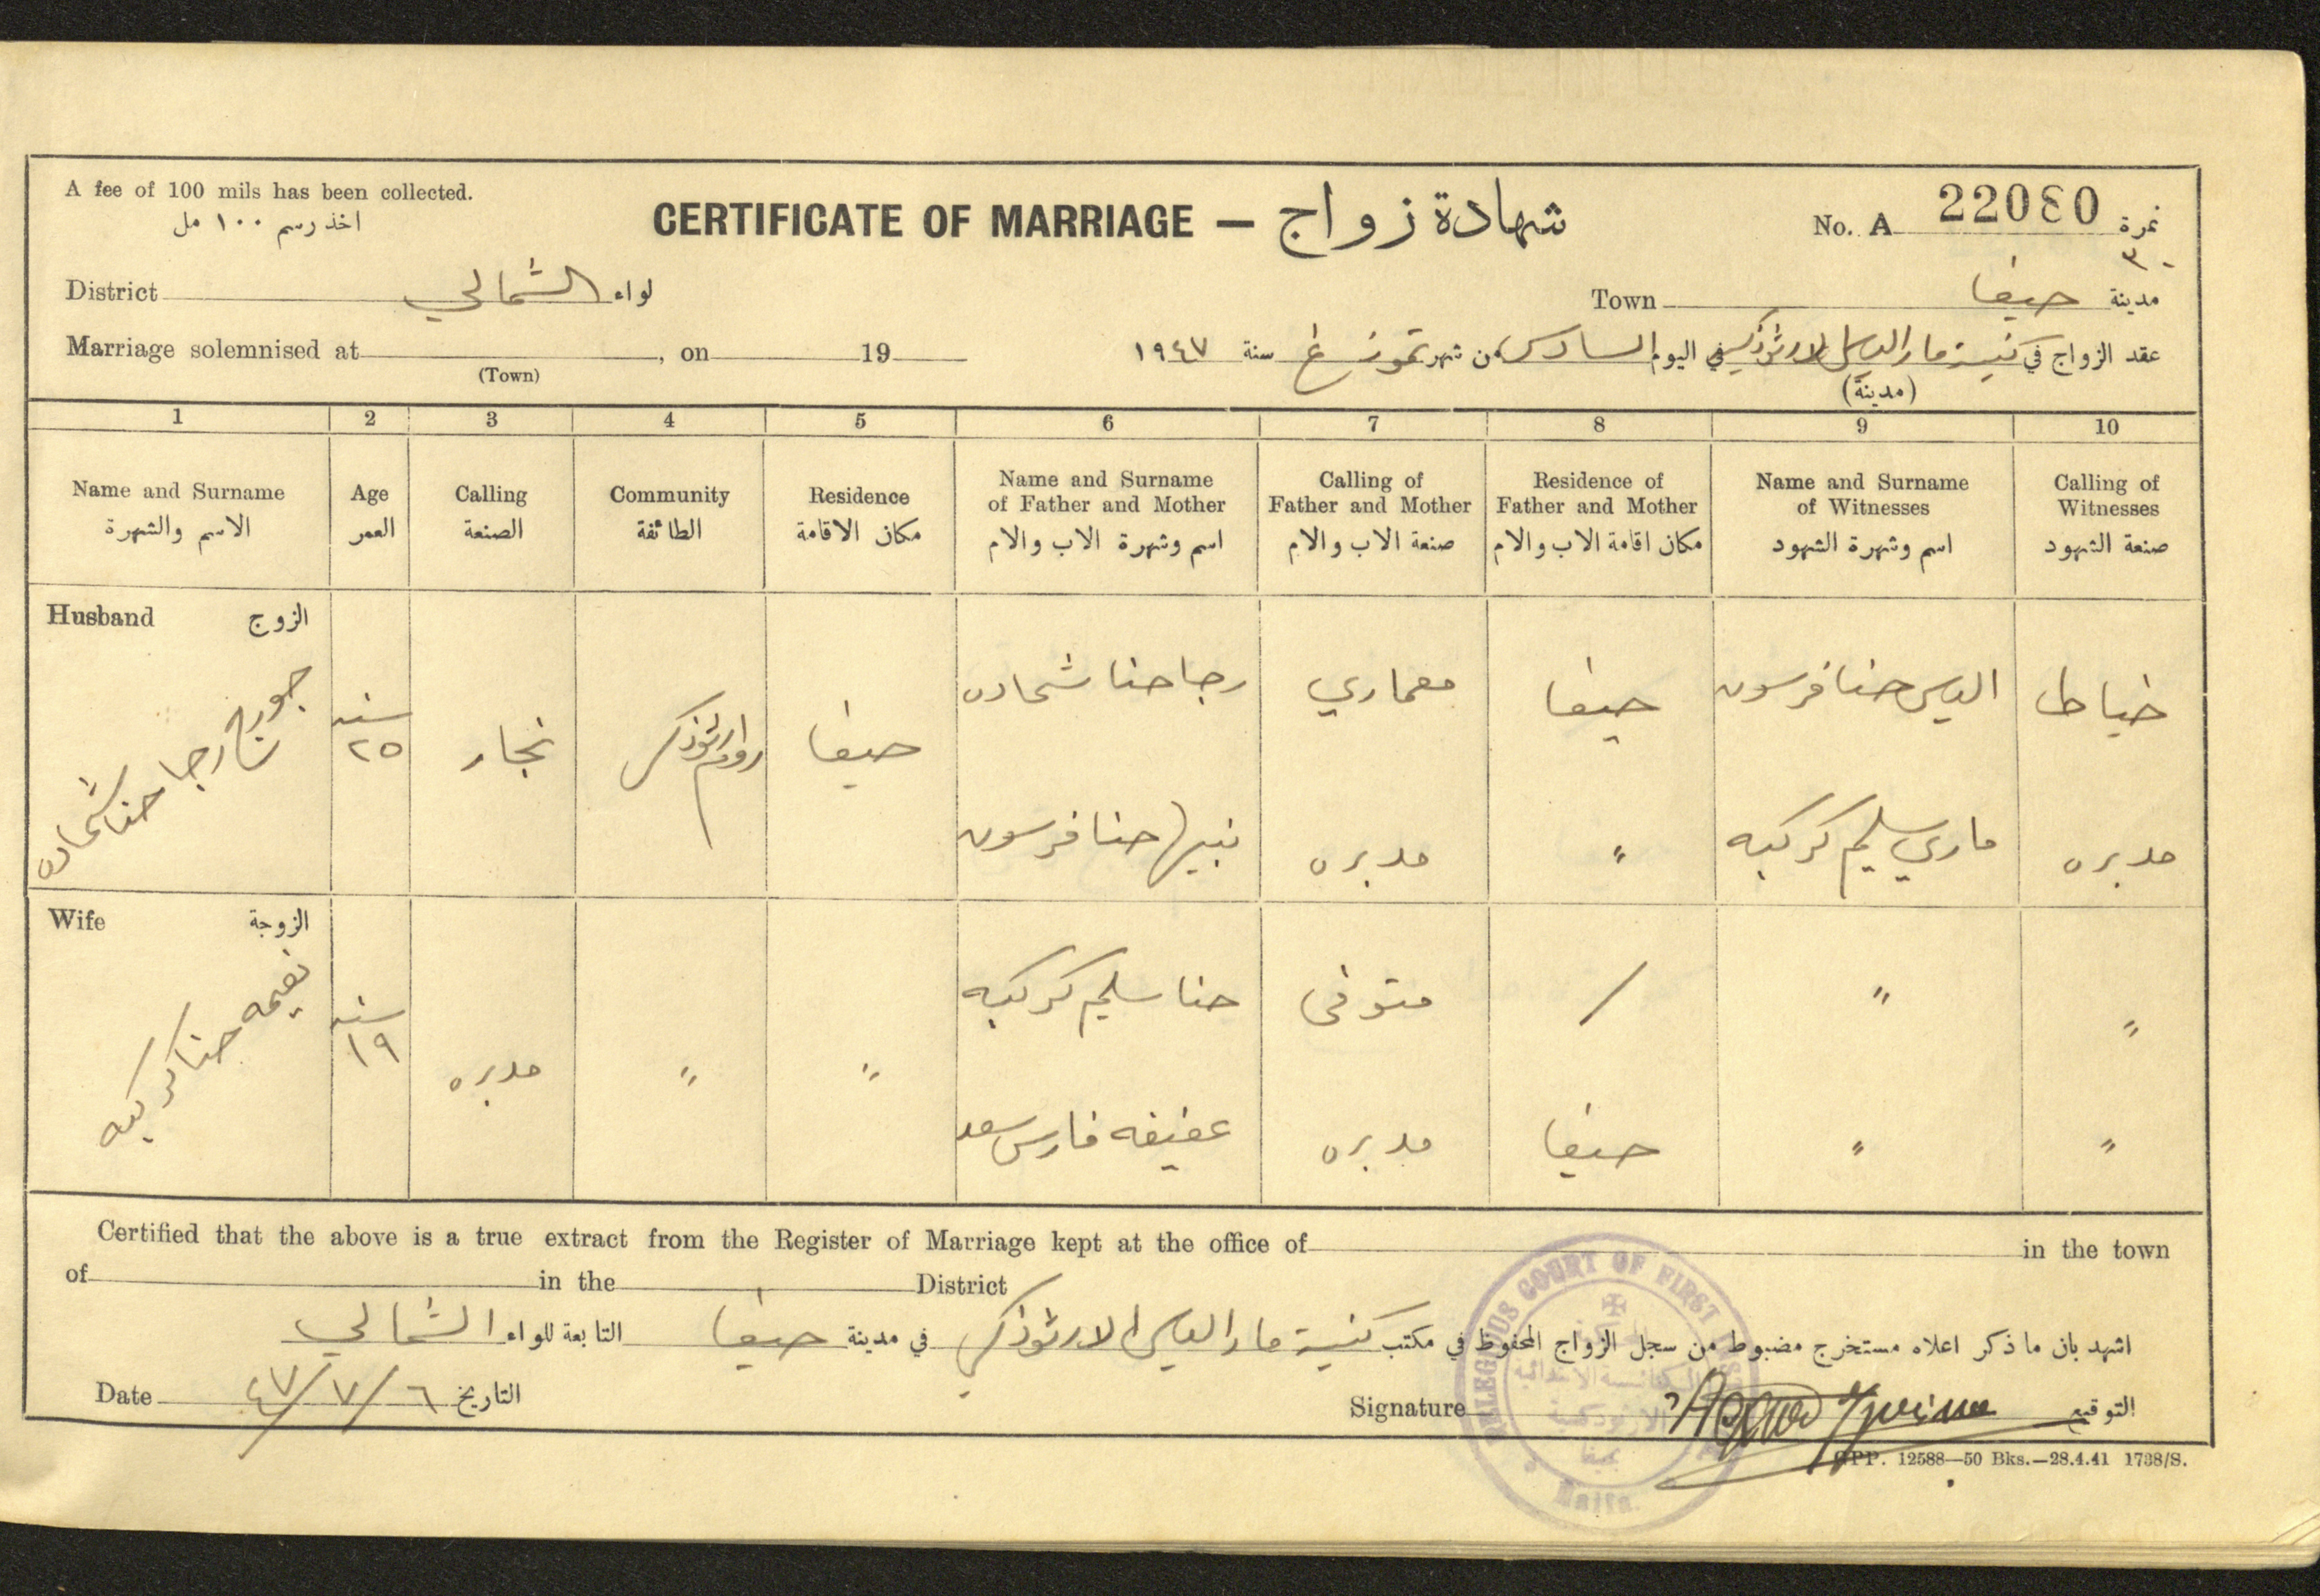 A fee of 100 mils has been collected.
اخذ رسم ١٠٠ مل
CERTIFICATE OF MARRIAGE — شهادة زواج
No. A 22080 نمرة
٣٠
District الشمالي لواء
Town حيفا مدينة
Marriage solemnised at , on 19
(Town)
عقد الزواج في كنيسة مار الياس الارثوذكسي في اليوم السادس من شهر تموز غ سنة ١٩٤٧
(مدينة)
1 2 3 4 5 6 7 8 9 10
Name and Surname
الاسم والشهرة
Age
العمر
Calling
الصنعة
Community
الطائفة
Residence
مكان الاقامة
Name and Surname
of Father and Mother
اسم وشهرة الاب والام
Calling of
Father and Mother
صنعة الاب والام
Residence of
Father and Mother
مكان اقامة الاب والام
Name and Surname
of Witnesses
اسم وشهرة الشهود
Calling of
Witnesses
صنعة الشهود
Husband الزوج
جورج رجا حنا شحاده
سنه
٢٥
نجار
روم ارثوذكس
حيفا
رجا حنا شحاده
معماري
حيفا
الياس حنا فرسون
خياط
نبيها حنا فرسون
مدبره
"
ماري سليم كركبه
مدبره
Wife الزوجة
نعيمه حنا كركبه
سنه
١٩
مدبره
"
"
حنا سليم كركبه
متوفى
/
"
"
عفيفه فارس سعد
مدبره
حيفا
"
"
Certified that the above is a true extract from the Register of Marriage kept at the office of in the town
of in the District
اشهد بان ما ذكر اعلاه مستخرج مضبوط من سجل الزواج المحفوظ في مكتب كنيسة مار الياس الارثوذكسي في مدينة حيفا التابعة للواء الشمالي
Date ٤٧/٧/٦ التاريخ
Signature التوقيع
RELIGIOUS COURT OF FIRST
الكنائسية الابتدائية
الارثوذكسية
بحيفا
Haifa.
GPP. 12588—50 Bks.—28.4.41 1738/S.